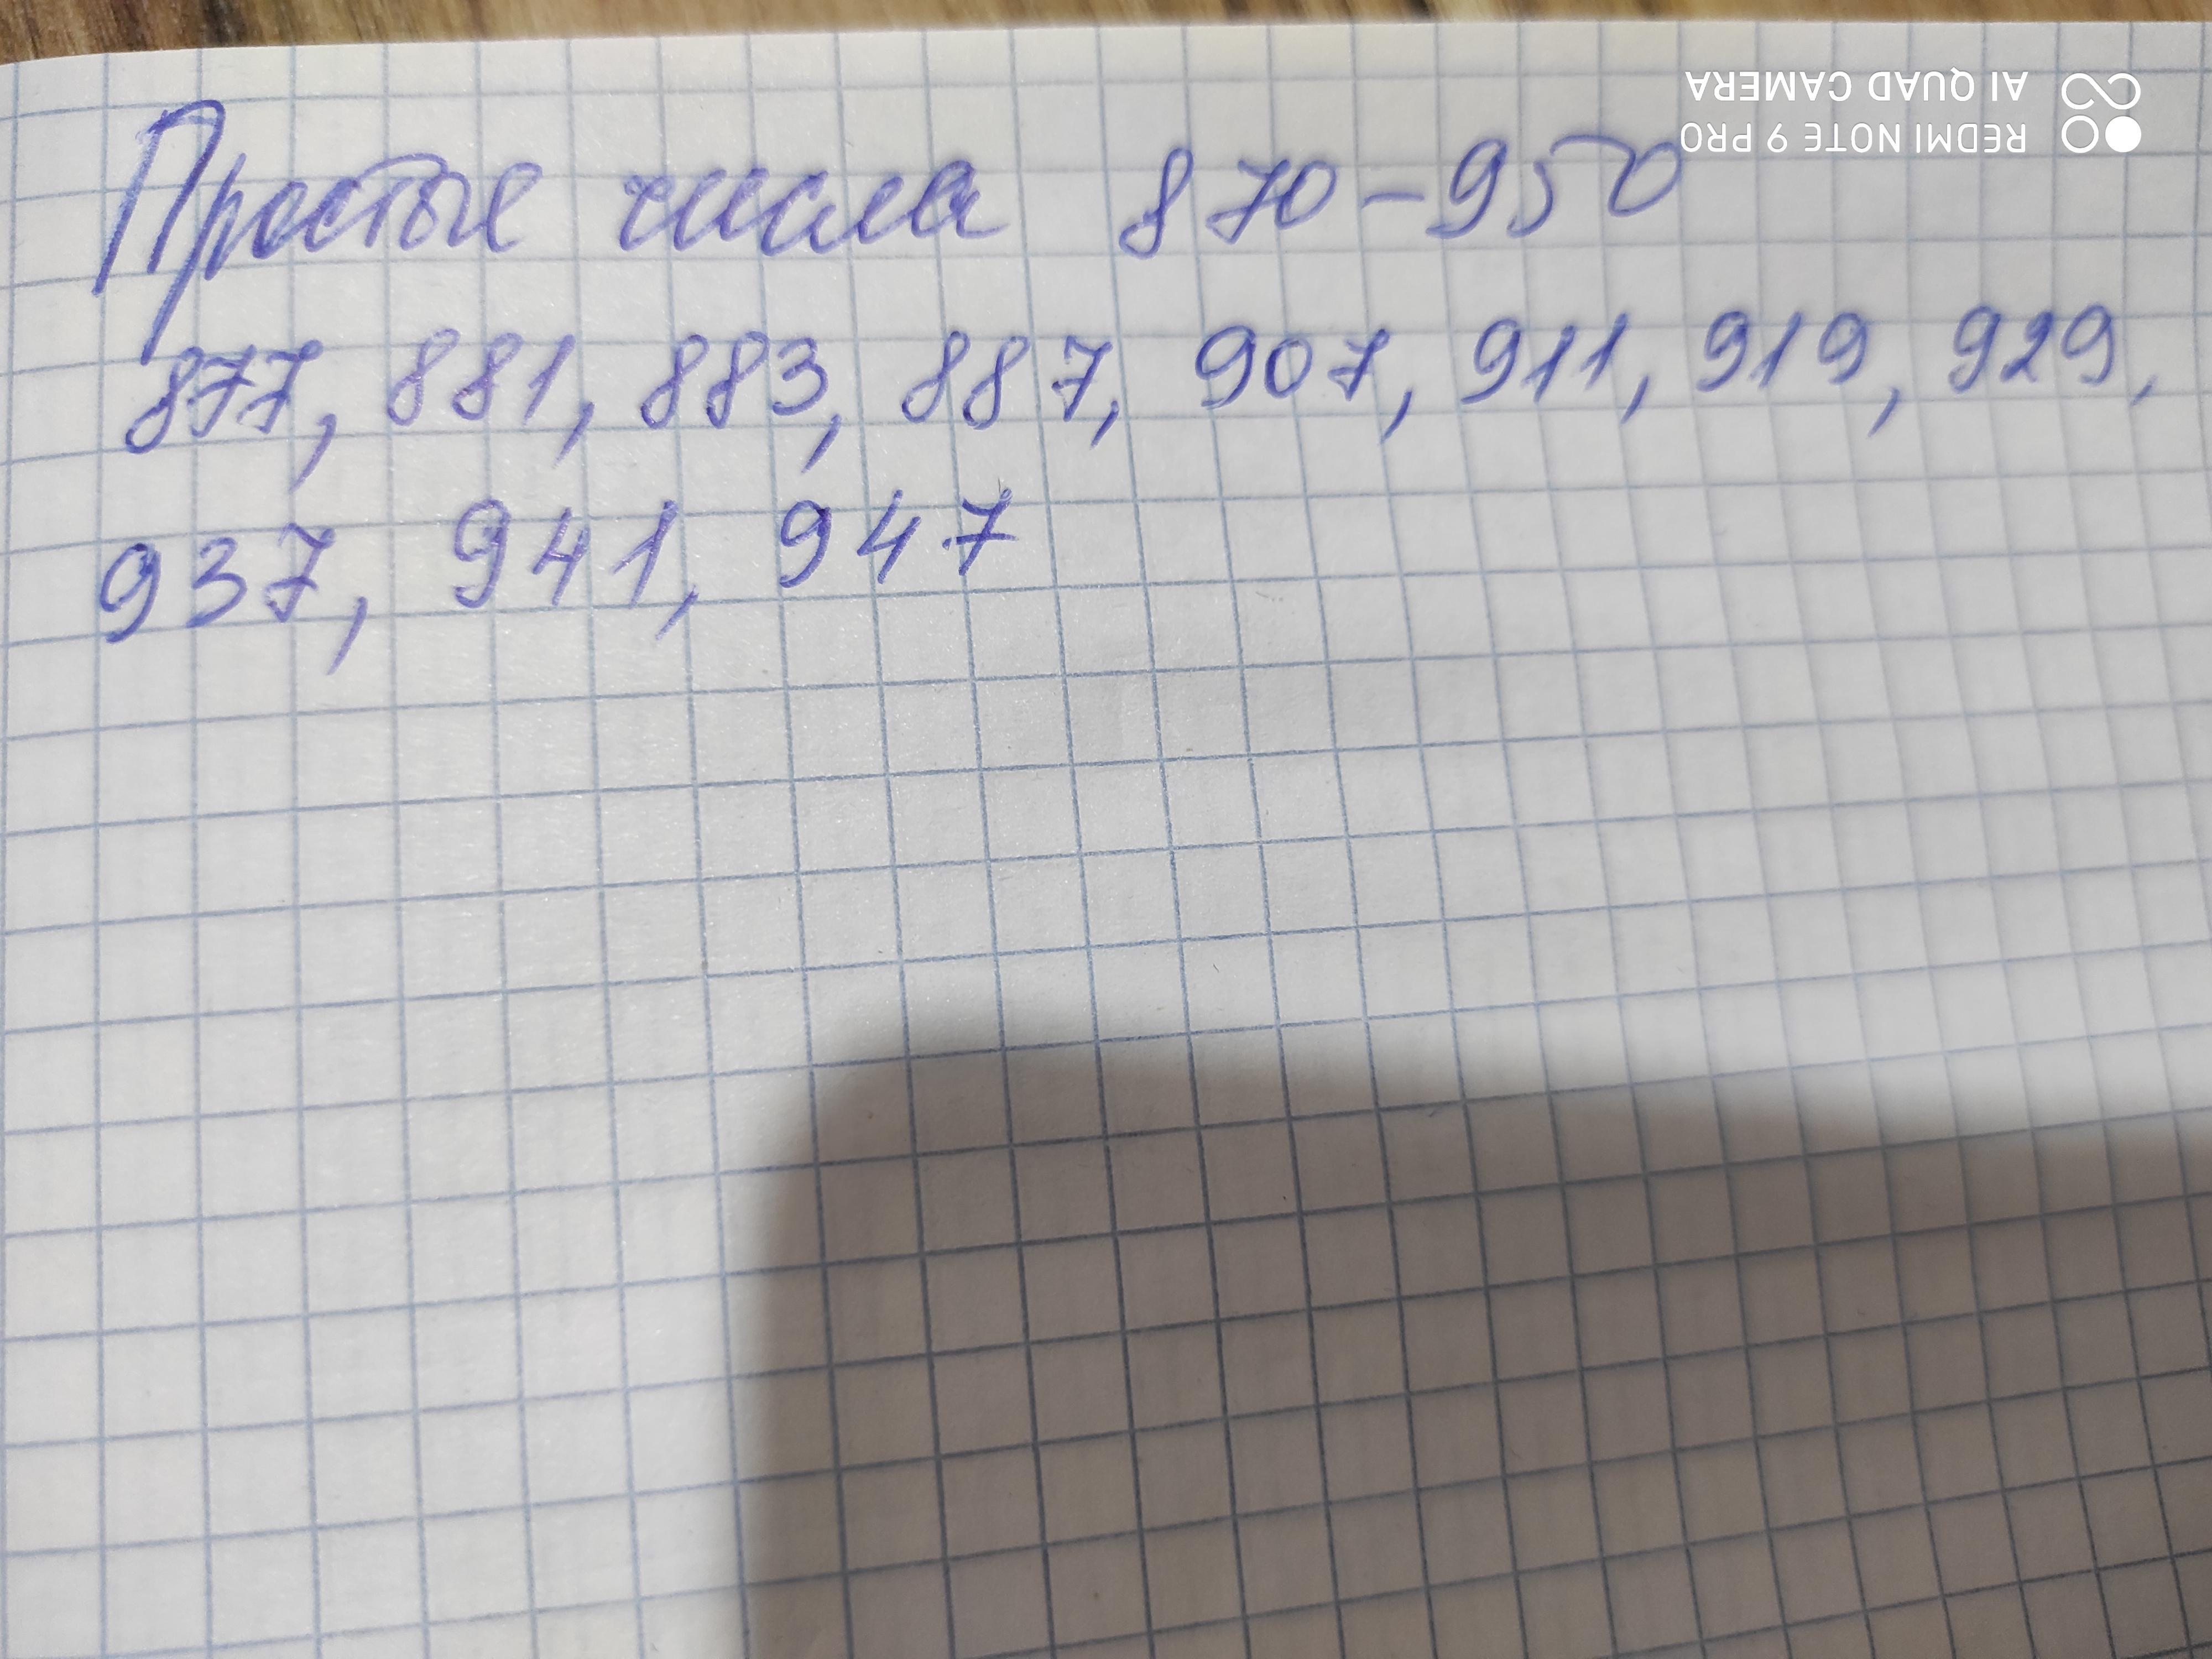 Простые числа 870-950
877, 881, 883, 887, 907, 911, 919, 929,
937, 941, 947
REDMI NOTE 9 PRO
AI QUAD CAMERA